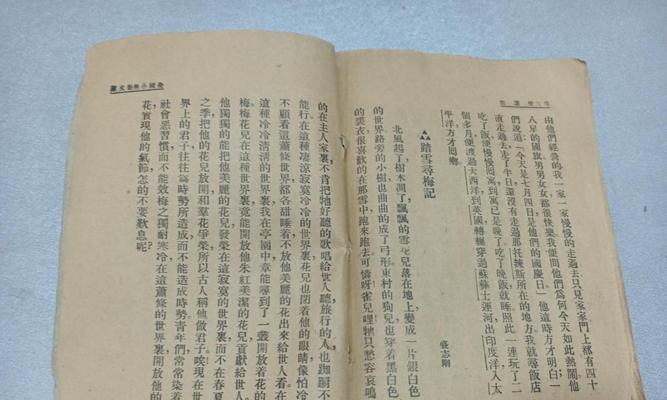 由他們經營的我一家一家慢慢的走過去只見家家門上都有四十
八星的國旗男男女女都很快樂我便問他們爲何今天如此熱鬧他
們說道「今天是七月四日是他們的國慶日」他這時方才明白一
直走過去走了半日還沒有走過那托辣斯所在的地方我就尋飯店
吃了飯便慢慢回寓到寓已是晚了吃了晚飯就睡照此一連玩了二
個多月便渡過大西洋到英國轉輾穿過蘇彝士運河出印度洋入太
平洋方才回鄉
踏雪尋梅記
盛志剛
北風起了樹木凋了飄飄的雪花兒落在地上變成一片銀白色
的世界路旁的小樹也曲曲的成了弓形東村的狗兒也穿着黑白色
的美衣很喜歡的在那雪中跑來跑去可憐呀雀兒哩牠只愁容哀鳴
全國小學新文庫
的在主人家裏不肯把牠好聽的歌唱給世人聽旅行的人也踟躕不
能行在這種凄涼寂寞冷冷的世界裏花兒也閉着他的眼睛像怕冷
不顧看這蕭條世界都各甜睡着不放他美麗的花出來給世人看在
這種冷冷清清的世界裏我在亭園中章能尋到了一叢開放着花的
梅梅花兒在這種世界裏竟能開放他朱紅美潔的花兒貢獻給世人
他獨獨的能把他美麗的花兒發榮在這寂寞的世界裏而不在春夏
之季把他的花兒放開和羣花爭榮所以古人稱他做君子唉現在世
界上的君子往往爲時勢所造成而不能造成時勢靑年們常常染着
社會惡習慣而不能效梅之獨耐寒冷在這蕭條的世界裏開放他的
花實現他的氣節怎的不要歎息呢?